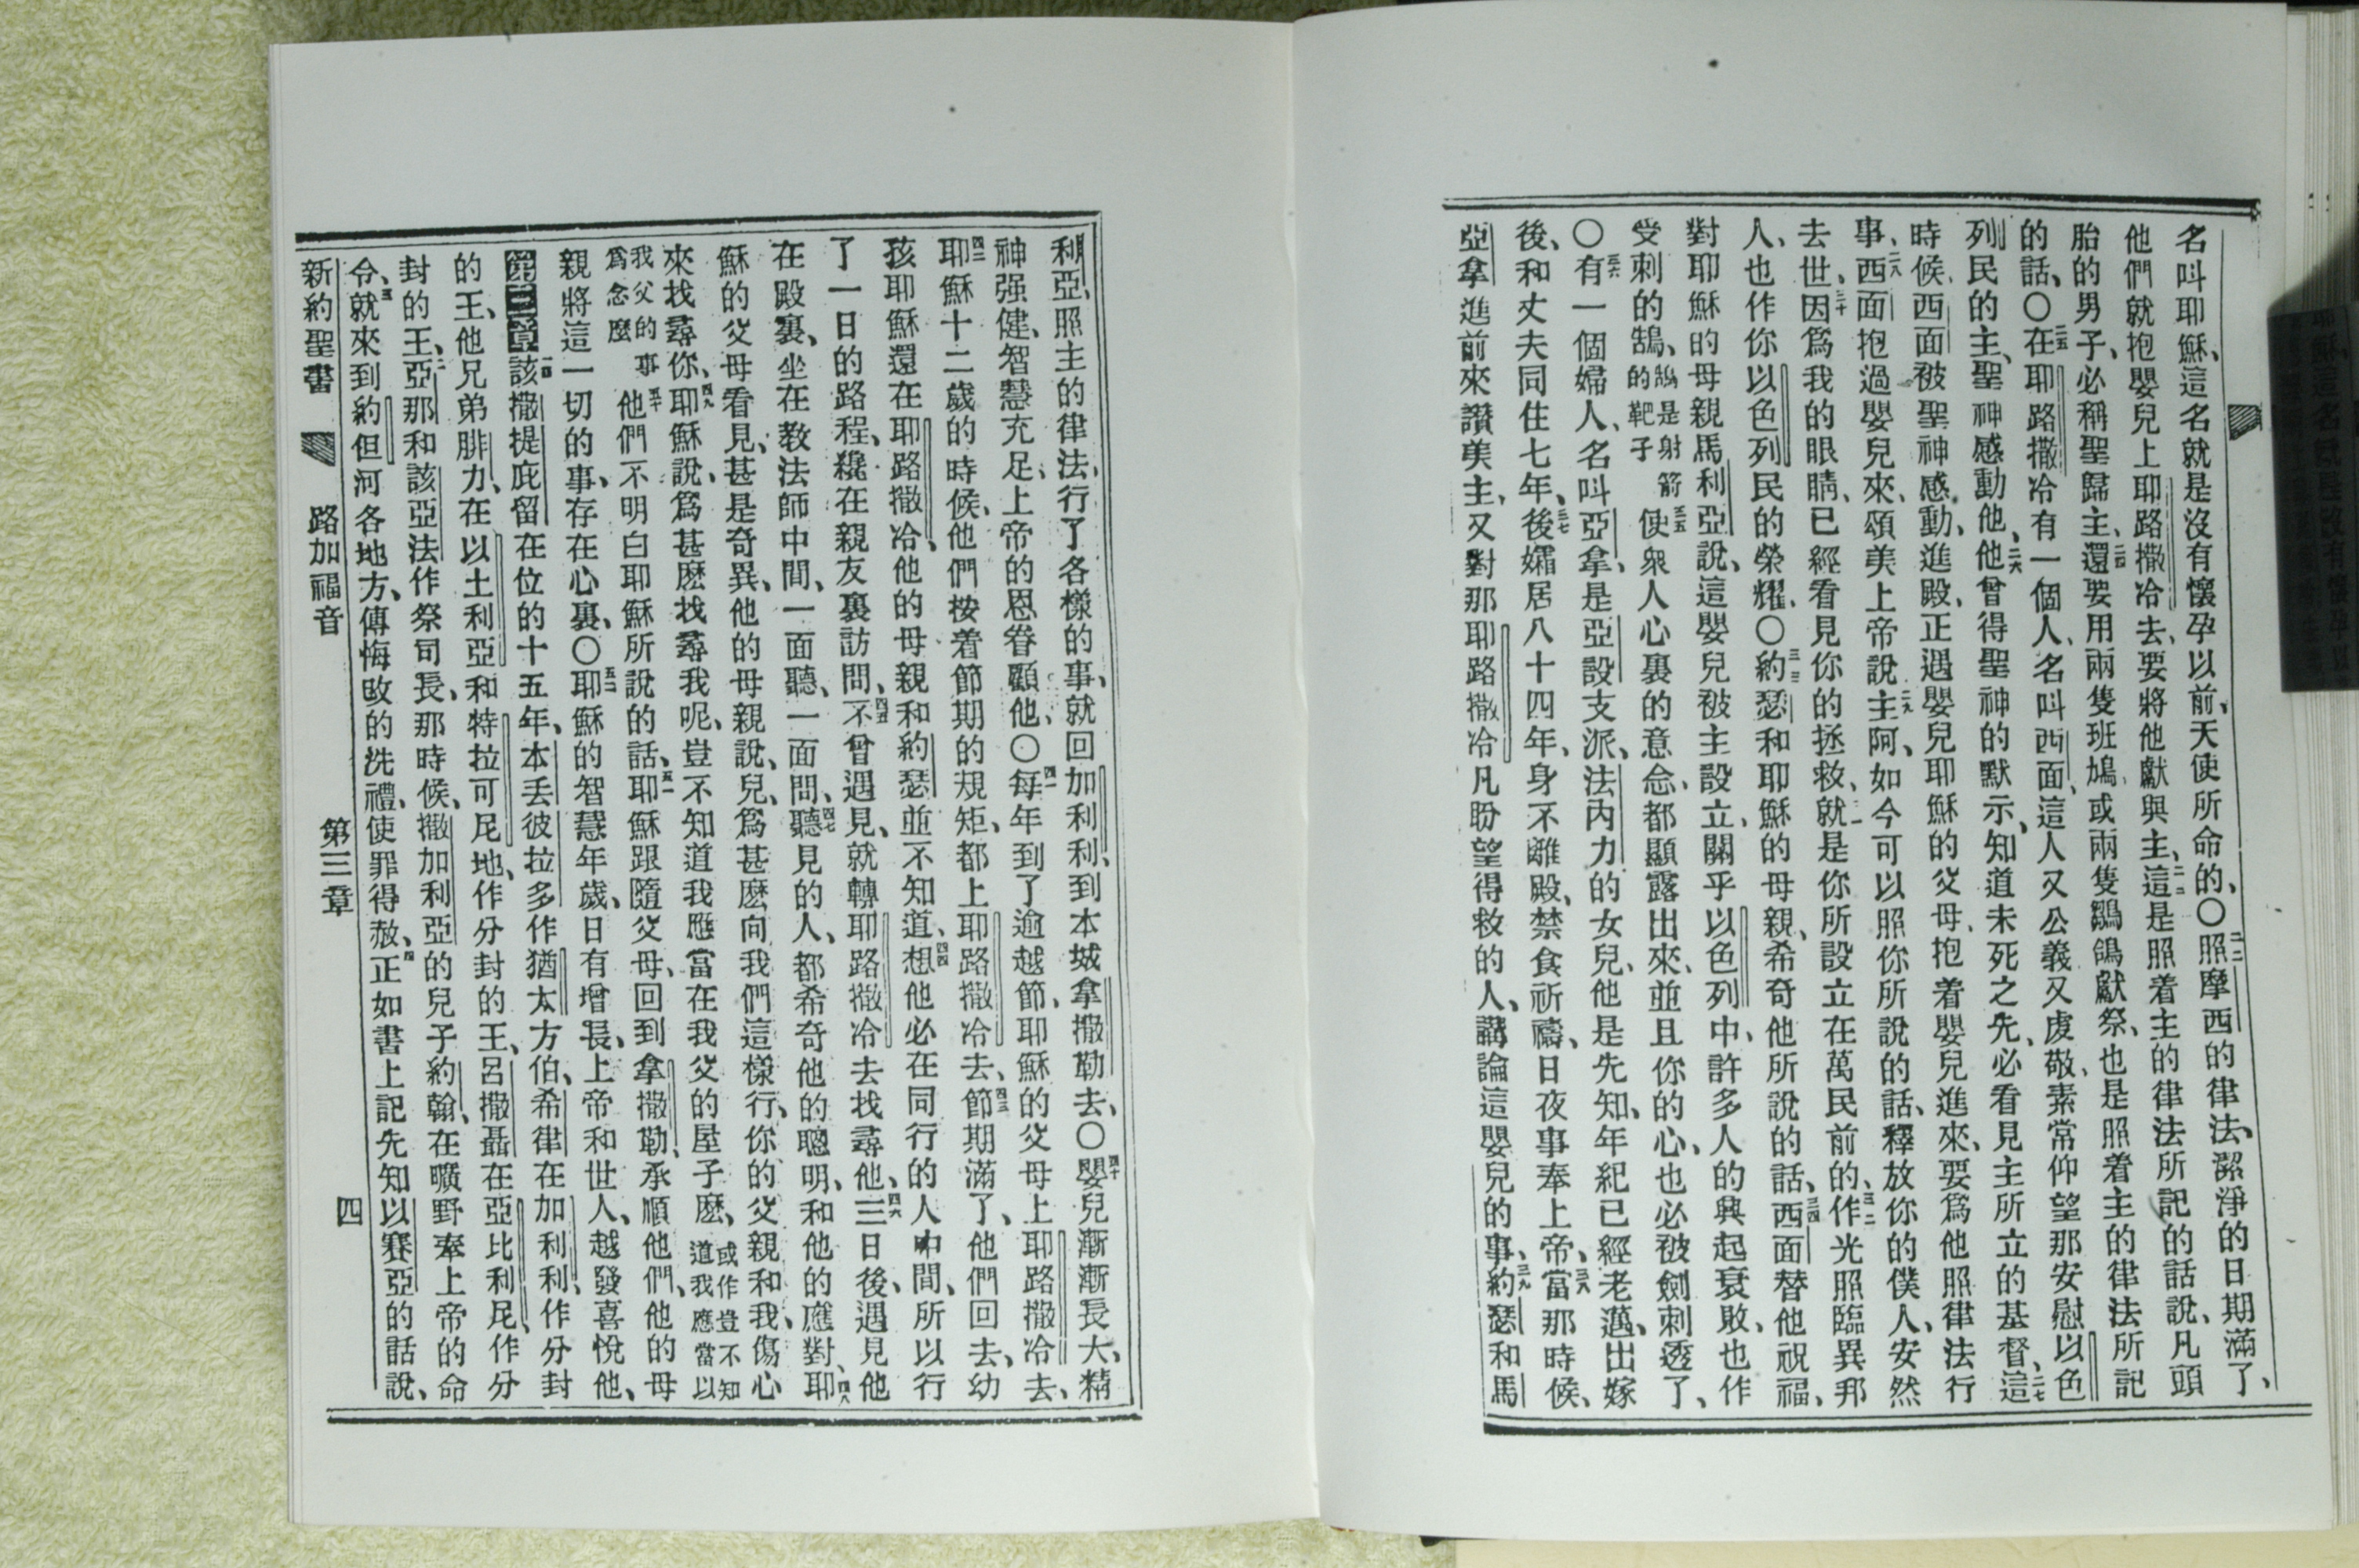 名叫耶穌、這名就是沒有懷孕以前、天使所命的、〇二二照摩西的律法、潔淨的日期滿了、
他們就抱嬰兒上耶路撒冷去、要將他獻與主、二三這是照着主的律法所記的話說、凡頭
胎的男子、必稱聖歸主、二四還要用兩隻班鳩、或兩隻鶵鴿獻祭、也是照着主的律法所記
的話、〇二五在耶路撒冷有一個人、名叫西面、這人又公義又虔敬、素常仰望那安慰以色
列民的主、聖神感動他、二六他曾得聖神的默示、知道未死之先、必看見主所立的基督、二七這
時候、西面被聖神感動、進殿、正遇嬰兒耶穌的父母、抱着嬰兒進來、要爲他照律法行
事、二八西面抱過嬰兒來、頌美上帝說、二九主阿、如今可以照你所說的話、釋放你的僕人、安然
去世、三十因爲我的眼睛、已經看見你的拯救、三一就是你所設立在萬民前的、三二作光照臨異邦
人、也作你以色列民的榮耀、〇三三約瑟和耶穌的母親、希奇他所說的話、三四西面替他祝福、
對耶穌的母親馬利亞說、這嬰兒被主設立、關乎以色列中、許多人的興起衰敗、也作
受刺的鵠、鵠是射箭的靶子三五使衆人心裏的意念、都顯露出來、並且你的心、也必被劍刺透了、
〇三六有一個婦人、名叫亞拿、是亞設支派、法內力的女兒、他是先知、年紀已經老邁、出嫁
後、和丈夫同住七年、三七後孀居八十四年、身不離殿、禁食祈禱、日夜事奉上帝、三八當那時候、
亞拿進前來讚美主、又對那耶路撒冷凡盼望得救的人、講論這嬰兒的事、三九約瑟和馬
利亞、照主的律法、行了各樣的事、就回加利利、到本城拿撒勒去、〇四十嬰兒漸漸長大、精
神强健、智慧充足、上帝的恩眷顧他、〇四一每年到了逾越節、耶穌的父母上耶路撒冷去、
四二耶穌十二歲的時候、他們按着節期的規矩、都上耶路撒冷去、四三節期滿了、他們回去、幼
孩耶穌還在耶路撒冷、他的母親和約瑟並不知道、四四想他必在同行的人中間、所以行
了一日的路程、纔在親友裏訪問、四五不曾遇見、就轉耶路撒冷去找尋他、四六三日後、遇見他
在殿裏、坐在教法師中間、一面聽、一面問、四七聽見的人、都希奇他的聰明、和他的應對、四八耶
穌的父母看見、甚是奇異、他的母親說、兒、爲甚麽向我們這樣行、你的父親和我、傷心
來找尋你、四九耶穌說、爲甚麽找尋我呢、豈不知道我應當在我父的屋子麽、或作豈不知道我應當以
我父的事爲念麽五十他們不明白耶穌所說的話、五一耶穌跟隨父母、回到拿撒勒、承順他們、他的母
親將這一切的事、存在心裏、〇五二耶穌的智慧年歲、日有增長、上帝和世人、越發喜悅他、
第三章一該撒提庇留在位的十五年、本丢彼拉多作猶太方伯、希律在加利利、作分封
的王、他兄弟腓力、在以土利亞和特拉可尼地、作分封的王、呂撒聶在亞比利尼、作分
封的王、二亞那和該亞法作祭司長、那時候、撒加利亞的兒子約翰、在曠野奉上帝的命
令、三就來到約但河各地方、傳悔改的洗禮、使罪得赦、四正如書上記先知以賽亞的話說、
新約聖書 路加福音 第三章 四